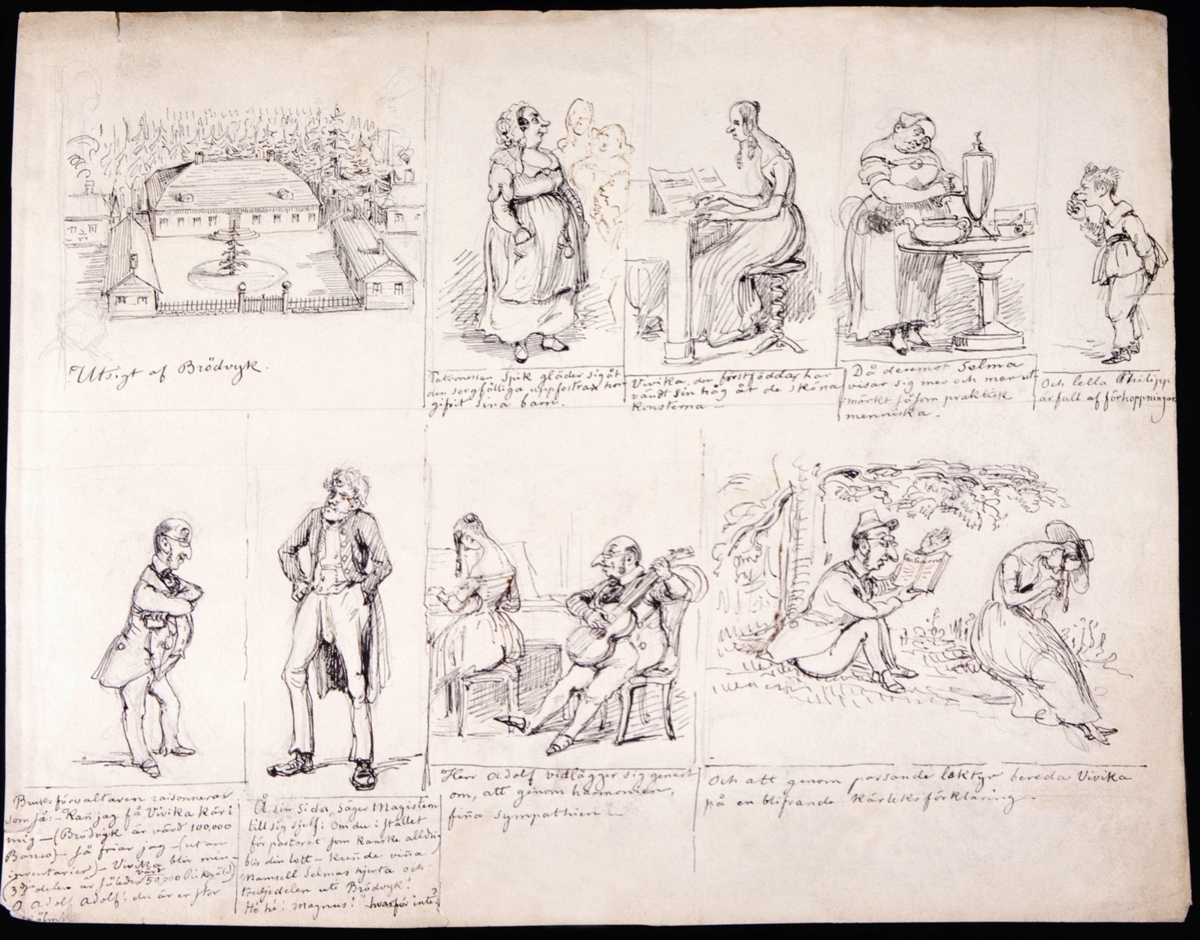 Utsigt af Brödvyk.
Patronessan Spik gläder sig åt
den sorgfälliga uppfostran hon
gifvit sina barn.
Vivika, den förstfödda, har
vändt sin håg åt de sköna
Konsterna —
Då deremot Selma
visar sig mer och mer ut-
märkt såsom praktisk
menniska.
Och lella Philipp
är full af förhoppningar
Bruksförvaltaren raisonnerar
som så: — Kan jag få Vivika kär i
mig — (Brödvyk är värd 100,000
Banco) — så friar jag — (utan
inventarier) — Vivika blir min —
delen är således värd 50,000
O Adolf Adolf! du är en stor
Å sin sida, säger Magistern
till sig sjelf: Om du i stället
för pastorat som kanske aldrig
blir din lott — kunde vinna
Mamsell Selmas hjerta och
tredjedelen uti Brödvyk!
Hé hé! Magnus! hvarför inte?
Herr Adolf vidlägger sig genast
om, att genom harmonien,
fina sympathien —
Och att genom passande lektyr bereda Vivika
på en blifvande kärleksförklaring.